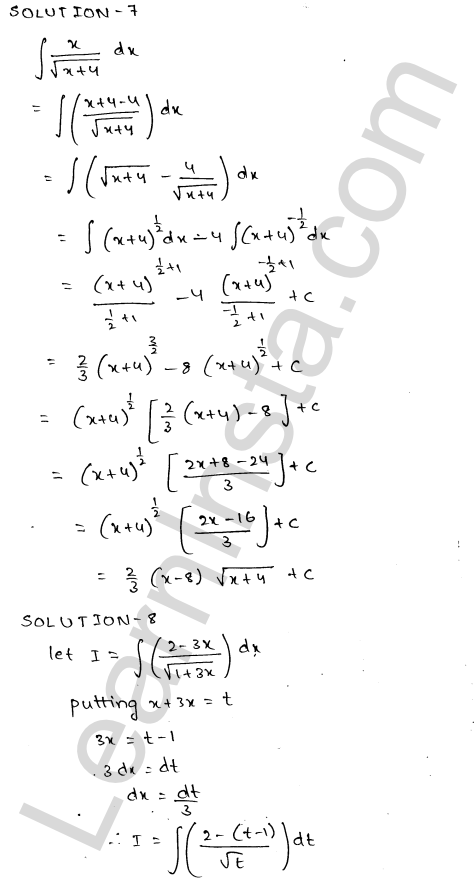 SOLUTION-7
∫ x/√(x+4) dx
= ∫ ((x+4-4)/√(x+4)) dx
= ∫ (√(x+4) - 4/√(x+4)) dx
= ∫ (x+4)^(1/2) dx - 4 ∫(x+4)^(-1/2) dx
= (x+4)^(1/2+1)/(1/2+1) - 4 (x+4)^(-1/2+1)/(-1/2+1) + c
= 2/3 (x+4)^(3/2) - 8 (x+4)^(1/2) + C
= (x+4)^(1/2) [2/3 (x+4) - 8] + C
= (x+4)^(1/2) [(2x+8-24)/3] + C
= (x+4)^(1/2) [(2x-16)/3] + C
= 2/3 (x-8) √(x+4) + C
SOLUTION-8
let I = ∫ ((2-3x)/√(1+3x)) dx
putting x+3x = t
3x = t-1
3dx = dt
dx = dt/3
∴ I = ∫ ((2-(t-1))/√t) dt
LearnInsta.com